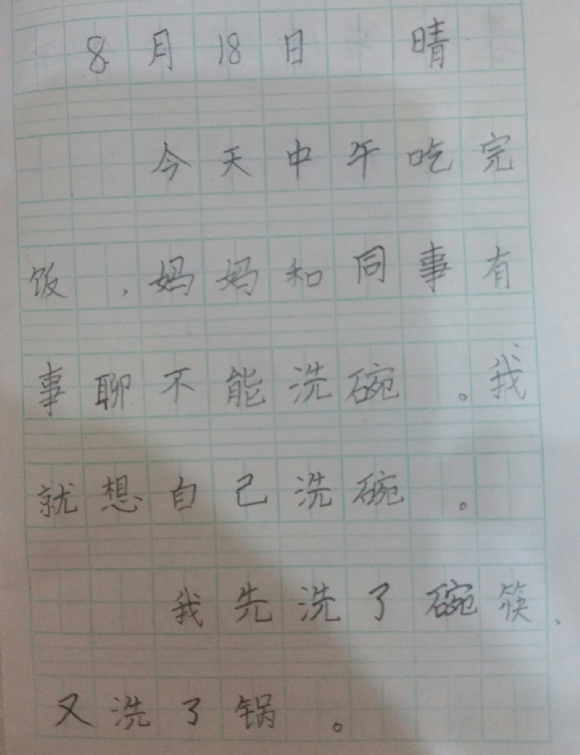 8月18日 晴
今天中午吃完
饭，妈妈和同事有
事聊不能洗碗。我
就想自己洗碗。
我先洗了碗筷，
又洗了锅。